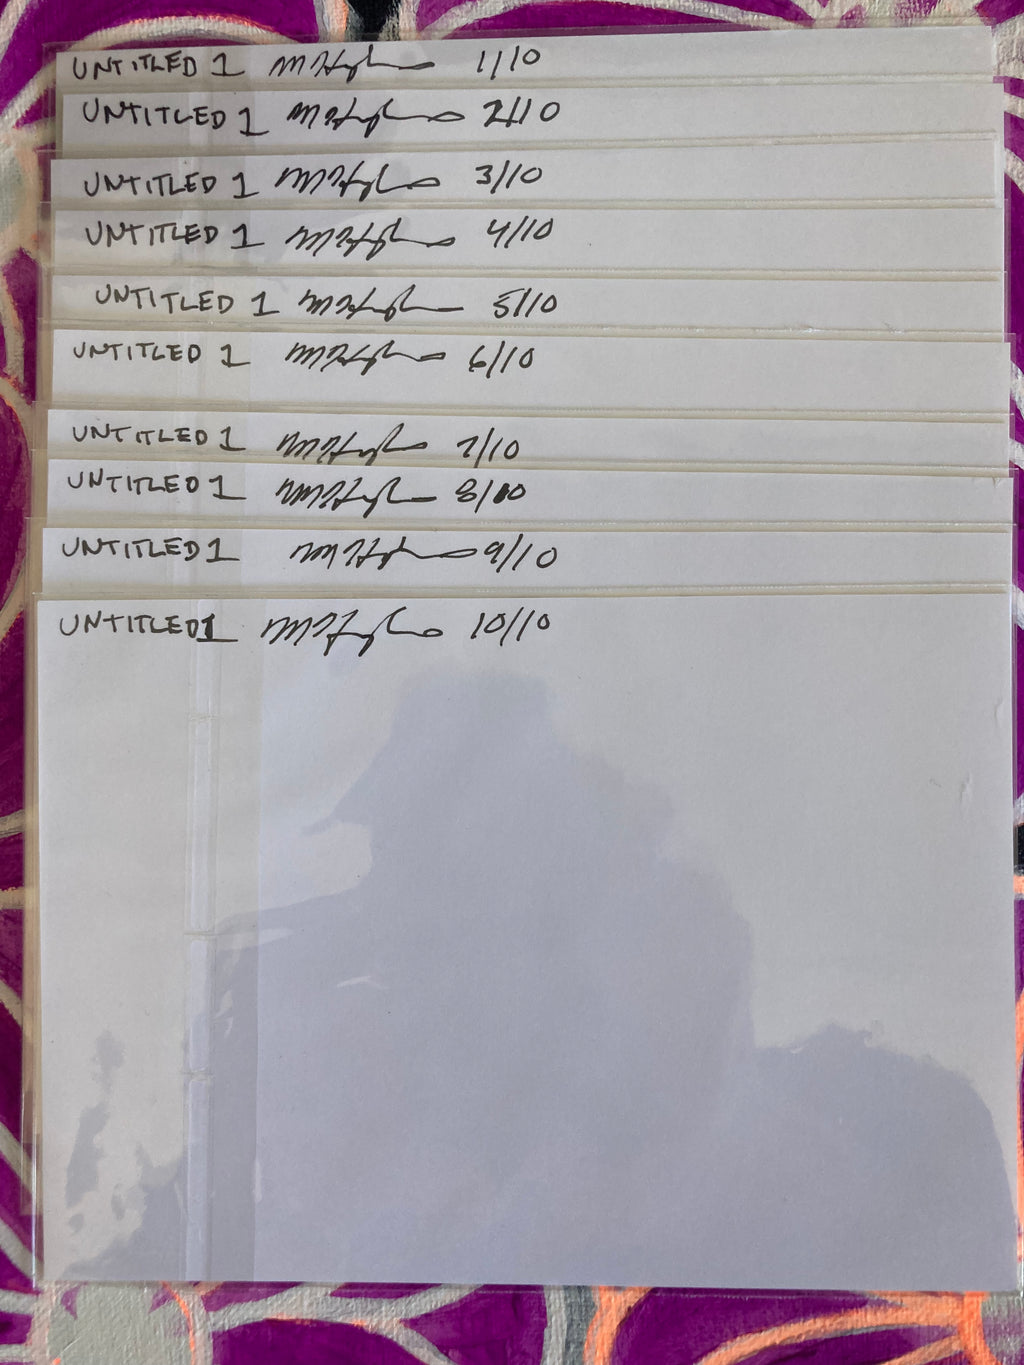 UNTITLED 1 1/10
UNTITLED 1 2/10
UNTITLED 1 3/10
UNTITLED 1 4/10
UNTITLED 1 5/10
UNTITLED 1 6/10
UNTITLED 1 7/10
UNTITLED 1 8/10
UNTITLED 1 9/10
UNTITLED 1 10/10